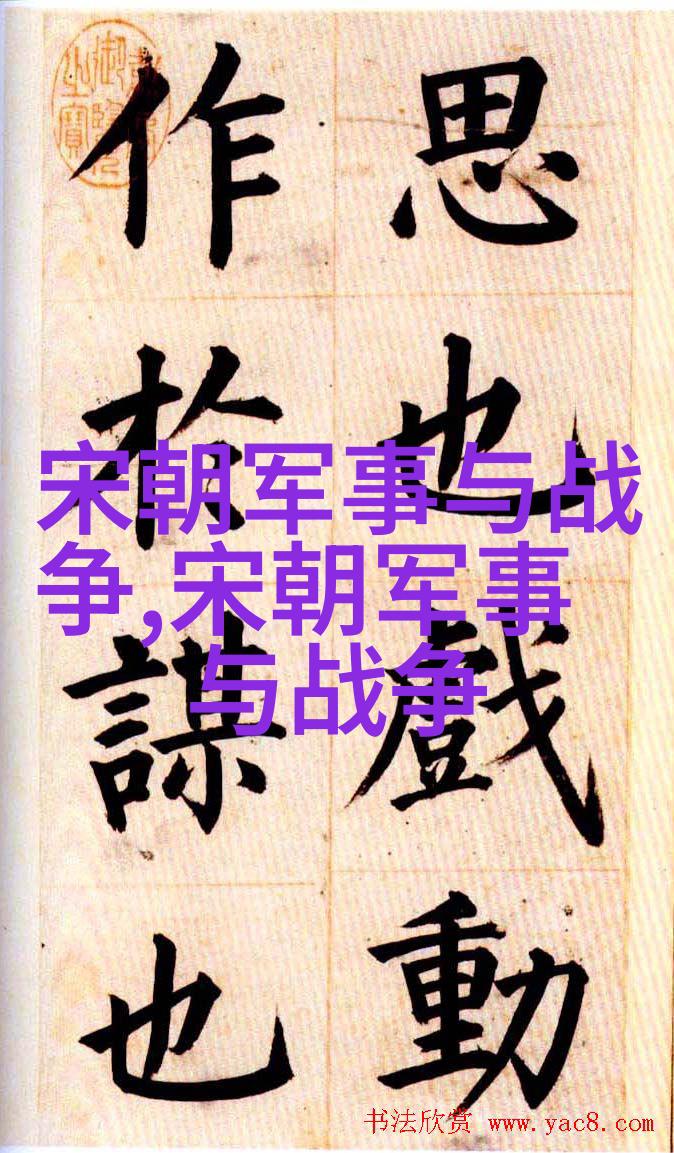 思也戲動
作於謀也
宋朝军事与战
争,宋朝军事
与战争
书法欣赏 www.yac8.com